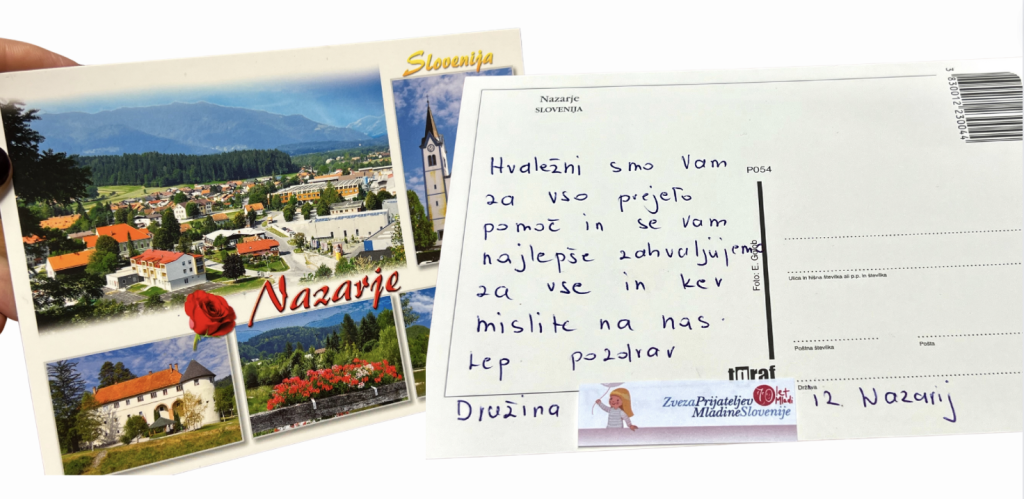 Slovenija
Nazarje
Nazarje
SLOVENIJA
3 830012 230044
Hvaležni smo Vam
za vso prejeto
pomoč in se vam
najlepše zahvaljujemo
za vse in ker
mislite na nas.
Lep pozdrav
Družina
iz Nazarij
P054
Foto: E.
Ulica in hišna številka ali p.p. in številka
Poštna številka
Pošta
Država
ZvezaPrijateljev
MladineSlovenije
70 let
Mladi